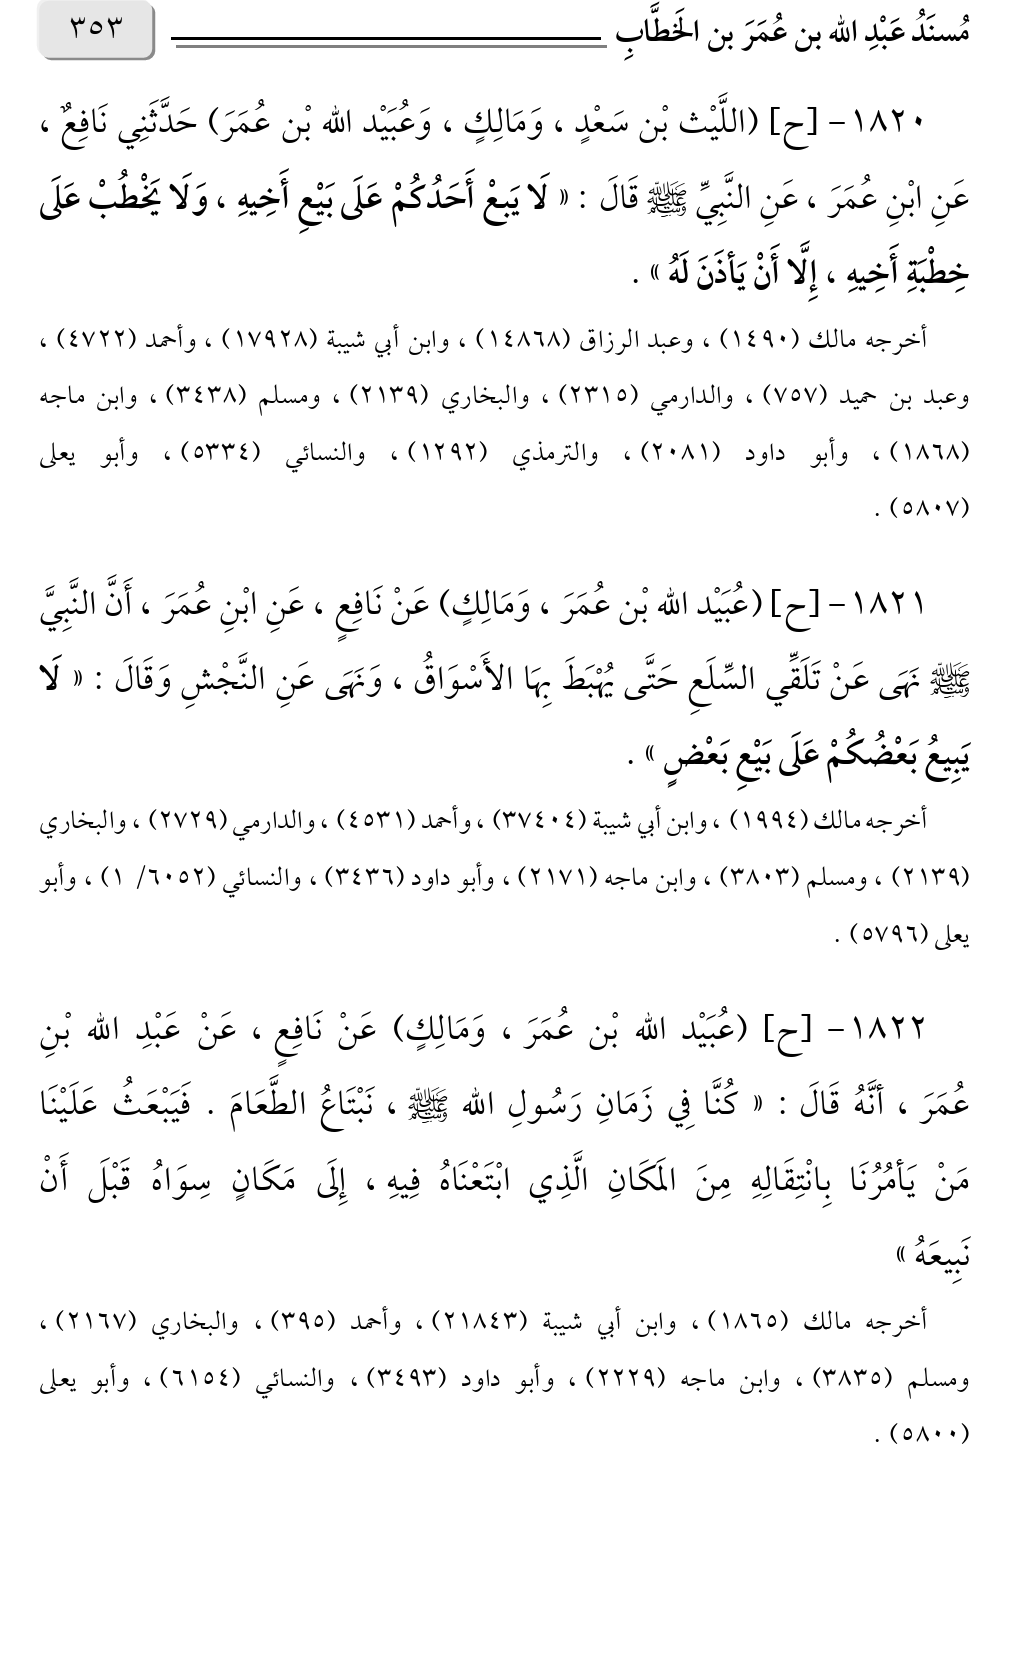 مُسنَدُ عَبْدِ الله بن عُمَرَ بن الخَطَّابِ ٣٥٣
١٨٢٠- [ح] (اللَّيْث بْن سَعْدٍ ، وَمَالِكٍ ، وَعُبَيْد الله بْن عُمَرَ) حَدَّثَنِي نَافِعٌ ،
عَنِ ابْنِ عُمَرَ ، عَنِ النَّبِيِّ ﷺ قَالَ : « لَا يَبعْ أَحَدُكُمْ عَلَى بَيْعِ أَخِيهِ ، وَلَا يَخْطُبْ عَلَى
خِطْبَةِ أَخِيهِ ، إِلَّا أَنْ يَأذَنَ لَهُ » .
أخرجه مالك (١٤٩٠) ، وعبد الرزاق (١٤٨٦٨) ، وابن أبي شيبة (١٧٩٢٨) ، وأحمد (٤٧٢٢) ،
وعبد بن حميد (٧٥٧) ، والدارمي (٢٣١٥) ، والبخاري (٢١٣٩) ، ومسلم (٣٤٣٨) ، وابن ماجه
(١٨٦٨) ، وأبو داود (٢٠٨١) ، والترمذي (١٢٩٢) ، والنسائي (٥٣٣٤) ، وأبو يعلى
(٥٨٠٧) .
١٨٢١- [ح] (عُبَيْد الله بْن عُمَرَ ، وَمَالِكٍ) عَنْ نَافِعٍ ، عَنِ ابْنِ عُمَرَ ، أَنَّ النَّبِيَّ
ﷺ نَهَى عَنْ تَلَقِّي السِّلَعِ حَتَّى يُهْبَطَ بِهَا الأَسْوَاقُ ، وَنَهَى عَنِ النَّجْشِ وَقَالَ : « لَا
يَبِيعُ بَعْضُكُمْ عَلَى بَيْعِ بَعْضٍ » .
أخرجه مالك (١٩٩٤) ، وابن أبي شيبة (٣٧٤٠٤) ، وأحمد (٤٥٣١) ، والدارمي (٢٧٢٩) ، والبخاري
(٢١٣٩) ، ومسلم (٣٨٠٣) ، وابن ماجه (٢١٧١) ، وأبو داود (٣٤٣٦) ، والنسائي (٦٠٥٢/ ١) ، وأبو
يعلى (٥٧٩٦) .
١٨٢٢- [ح] (عُبَيْد الله بْن عُمَرَ ، وَمَالِكٍ) عَنْ نَافِعٍ ، عَنْ عَبْدِ الله بْنِ
عُمَرَ ، أنَّهُ قَالَ : « كُنَّا فِي زَمَانِ رَسُولِ الله ﷺ ، نَبْتَاعُ الطَّعَامَ . فَيَبْعَثُ عَلَيْنَا
مَنْ يَأمُرُنَا بِانْتِقَالِهِ مِنَ المَكَانِ الَّذِي ابْتَعْنَاهُ فِيهِ ، إِلَى مَكَانٍ سِوَاهُ قَبْلَ أَنْ
نَبِيعَهُ »
أخرجه مالك (١٨٦٥) ، وابن أبي شيبة (٢١٨٤٣) ، وأحمد (٣٩٥) ، والبخاري (٢١٦٧) ،
ومسلم (٣٨٣٥) ، وابن ماجه (٢٢٢٩) ، وأبو داود (٣٤٩٣) ، والنسائي (٦١٥٤) ، وأبو يعلى
(٥٨٠٠) .